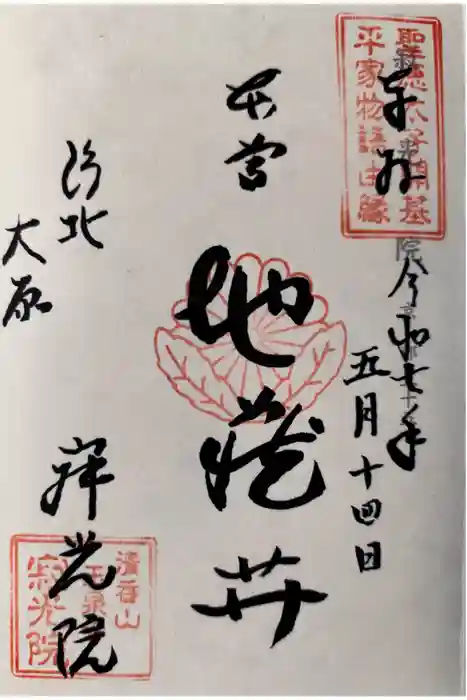 聖徳太子開基
平家物語由縁
奉拝
令和七年
五月十四日
本尊
地蔵井
洛北
大原
寂光院
清香山
玉泉寺
寂光院